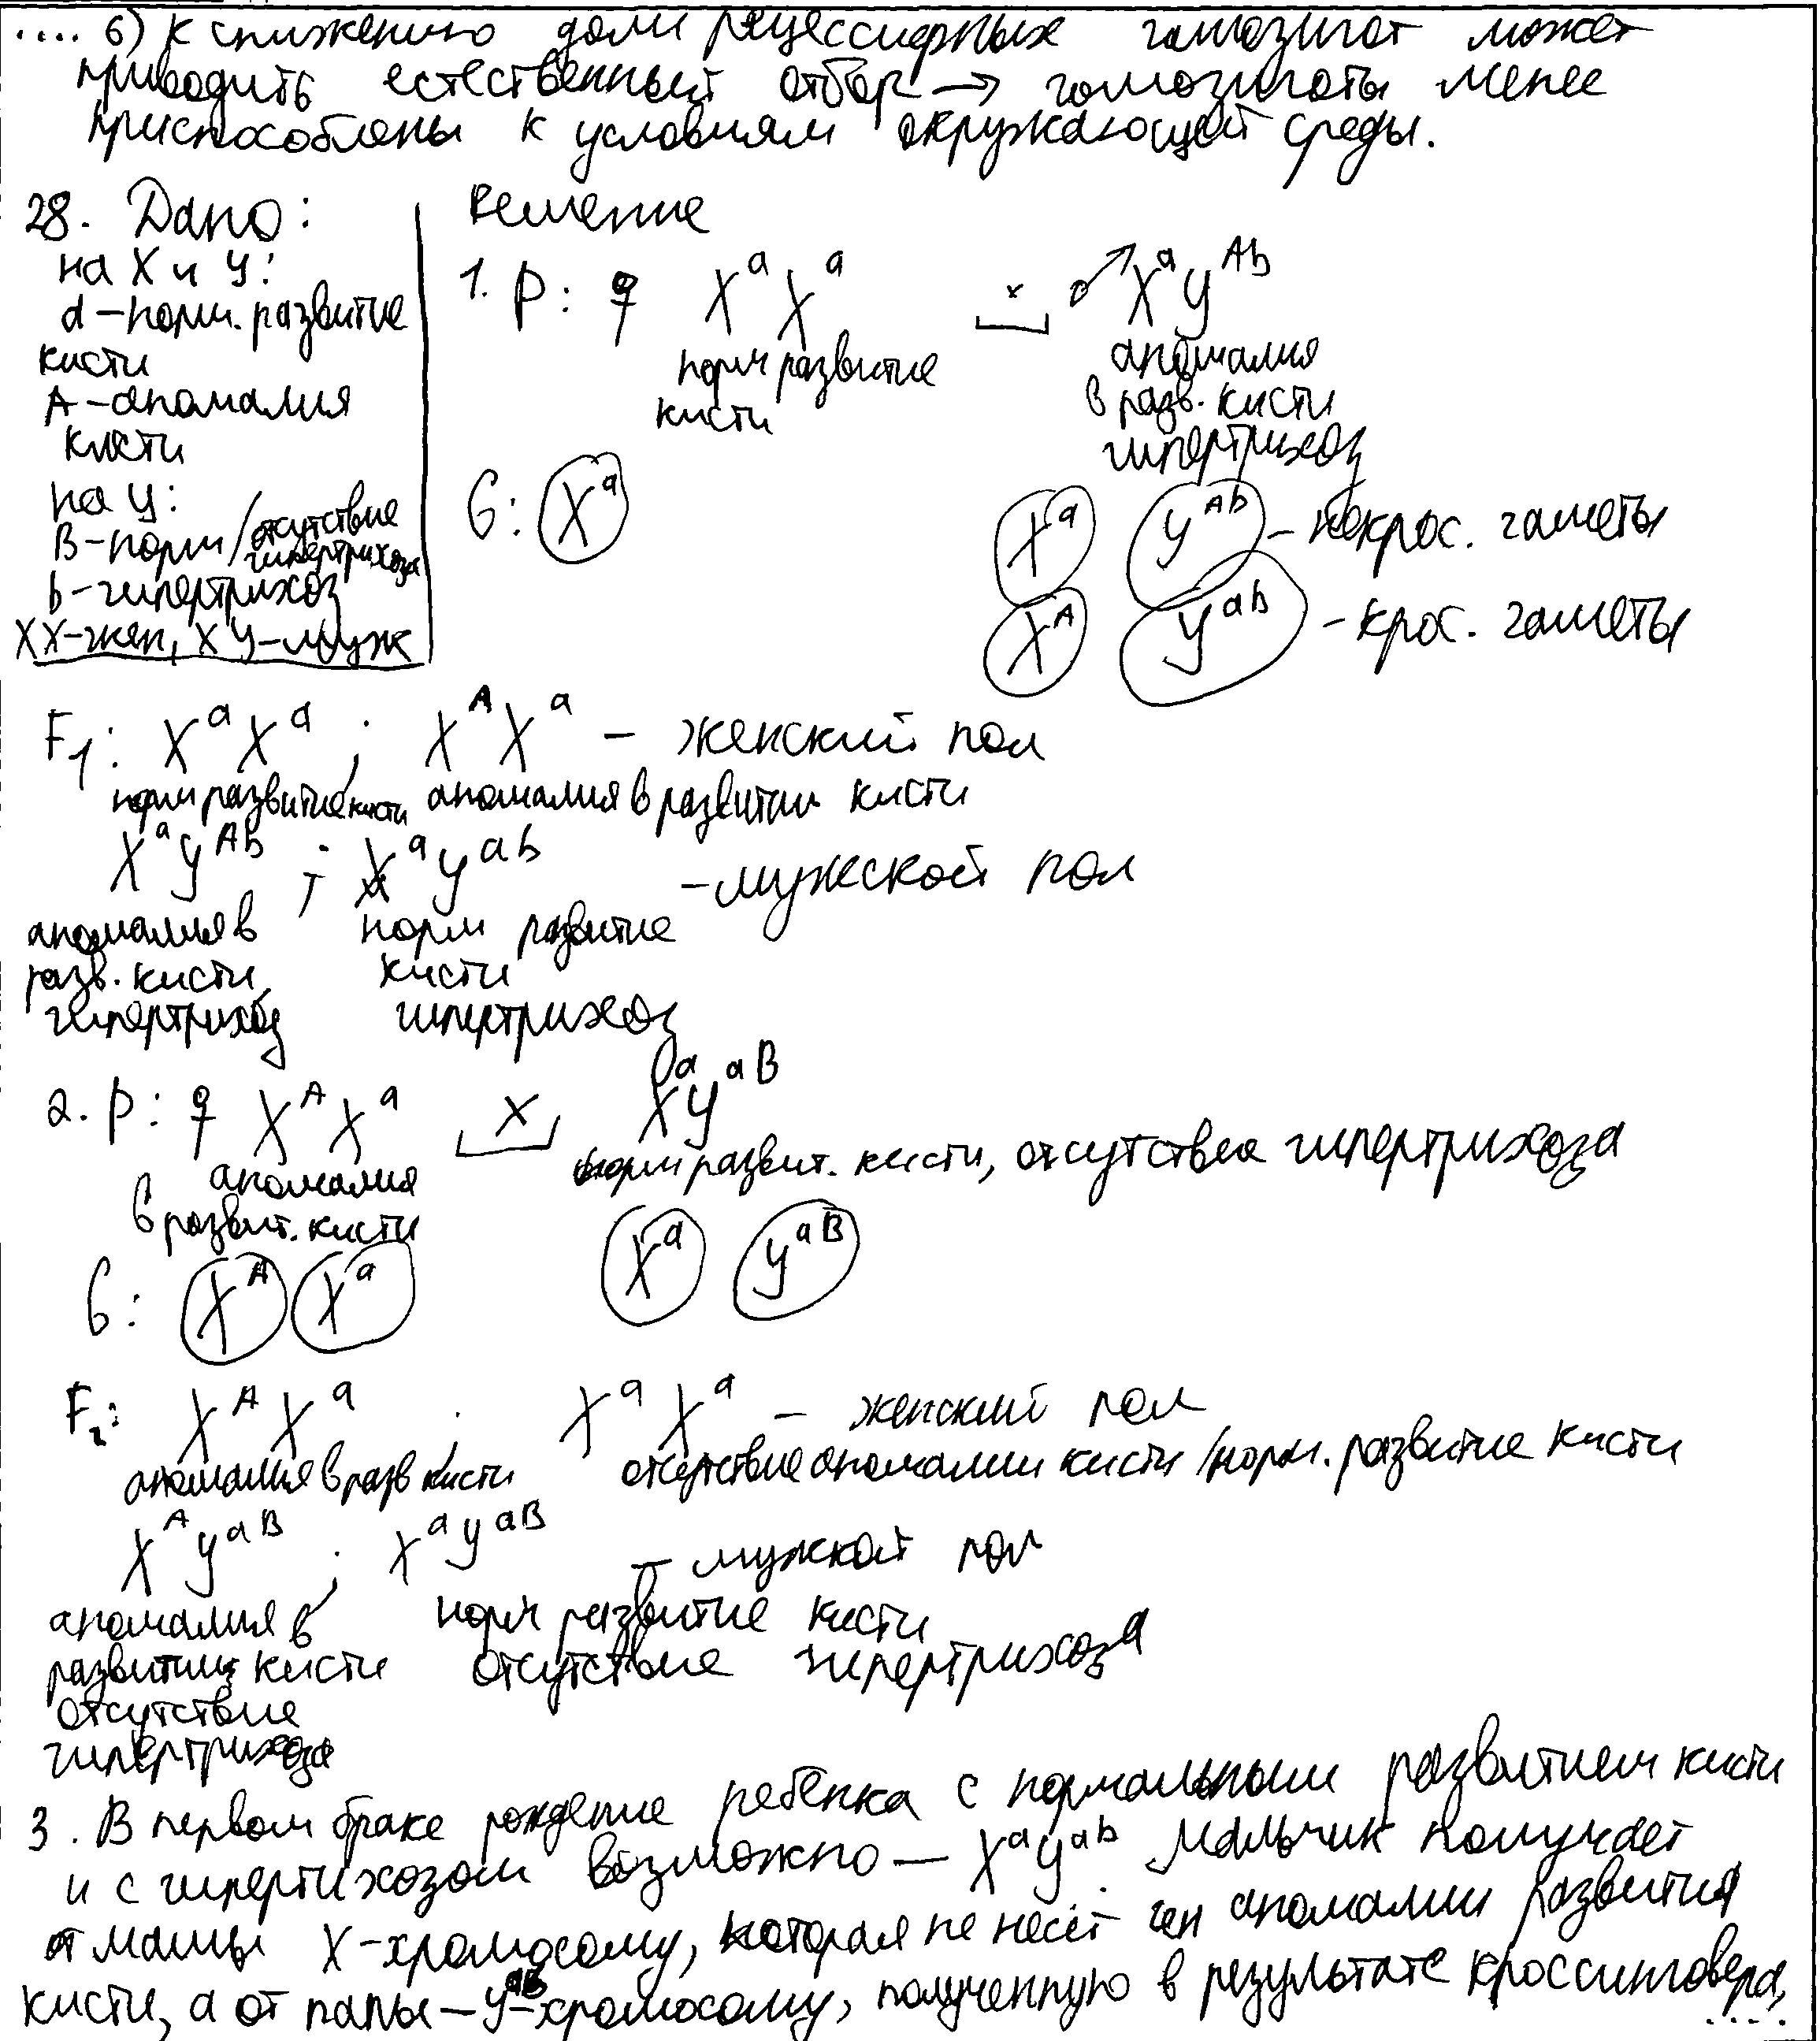 .... 6) к снижению доли рецессивных гомозигот может
приводить естественный отбор → гомозиготы менее
приспособлены к условиям окружающей среды.
28. Дано:
на X и Y:
a – норм. развитие
кисти
A – аномалия
кисти
на Y:
B – норм / отсутствие
гипертрихоза
b – гипертрихоз
XX – жен, XY – муж
Решение
1. P: ♀ XᵃXᵃ × ♂ XᵃYᴬᵇ
норм развитие
кисти
аномалия
в разв. кисти
гипертрихоз
G: Xᵃ
Xᵃ Yᴬᵇ – некрос. гаметы
Xᴬ Yᵃᵇ – крос. гаметы
F₁: XᵃXᵃ ; XᴬXᵃ – женский пол
норм развитие кисти аномалия в развитии кисти
XᵃYᴬᵇ ; XᵃYᵃᵇ – мужской пол
аномалия в
разв. кисти,
гипертрихоз
норм развитие
кисти
гипертрихоз
2. P: ♀ XᴬXᵃ × XᵃYᵃᴮ
аномалия
в развит. кисти
норм развит. кисти, отсутствие гипертрихоза
G: Xᴬ Xᵃ Xᵃ Yᵃᴮ
F₂: XᴬXᵃ ; XᵃXᵃ – женский пол
аномалия в разв кисти отсутствие аномалии кисти / норм. развитие кисти
XᴬYᵃᴮ ; XᵃYᵃᴮ – мужской пол
аномалия в
развитии кисти
отсутствие
гипертрихоза
норм развитие кисти
отсутствие гипертрихоза
3. В первом браке рождение ребёнка с нормальным развитием кисти
и с гипертихозом возможно – XᵃYᵃᵇ. Мальчик получает
от мамы X-хромосому, которая не несёт ген аномалии развития
кисти, а от папы – Yᵃᵇ-хромосому, полученную в результате кроссинговера,
....